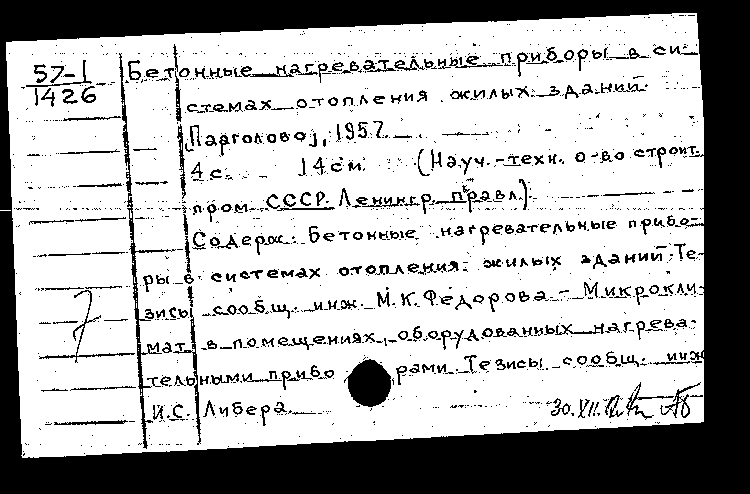 57-1
1426
Бетонные нагревательные приборы в си-
стемах отопления жилых зданий.
[Парголово], 1957
4 с. 14 см. (Науч.-техн. о-во строит.
пром СССР. Ленингр. правл.)
Содерж: Бетонные нагревательные прибо-
ры в системах отопления жилых зданий: Те-
зисы сообщ. инж. М.К. Федорова - Микрокли-
мат в помещениях, оборудованных нагрева-
тельными прибо рами. Тезисы сообщ. инж
И.С. Либера
7
30.XII.